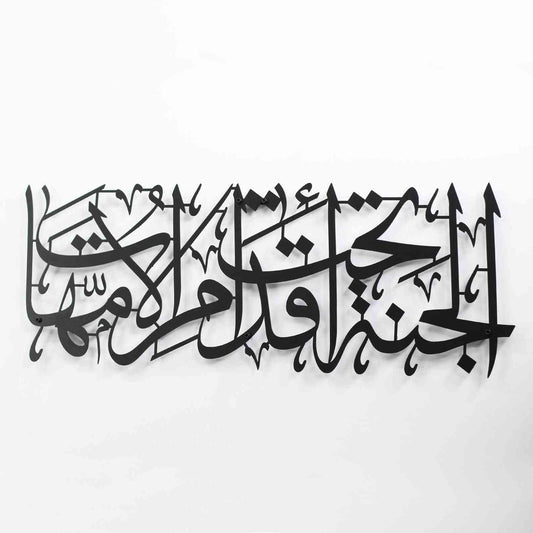 الجنة تحت أقدام الأمّهات